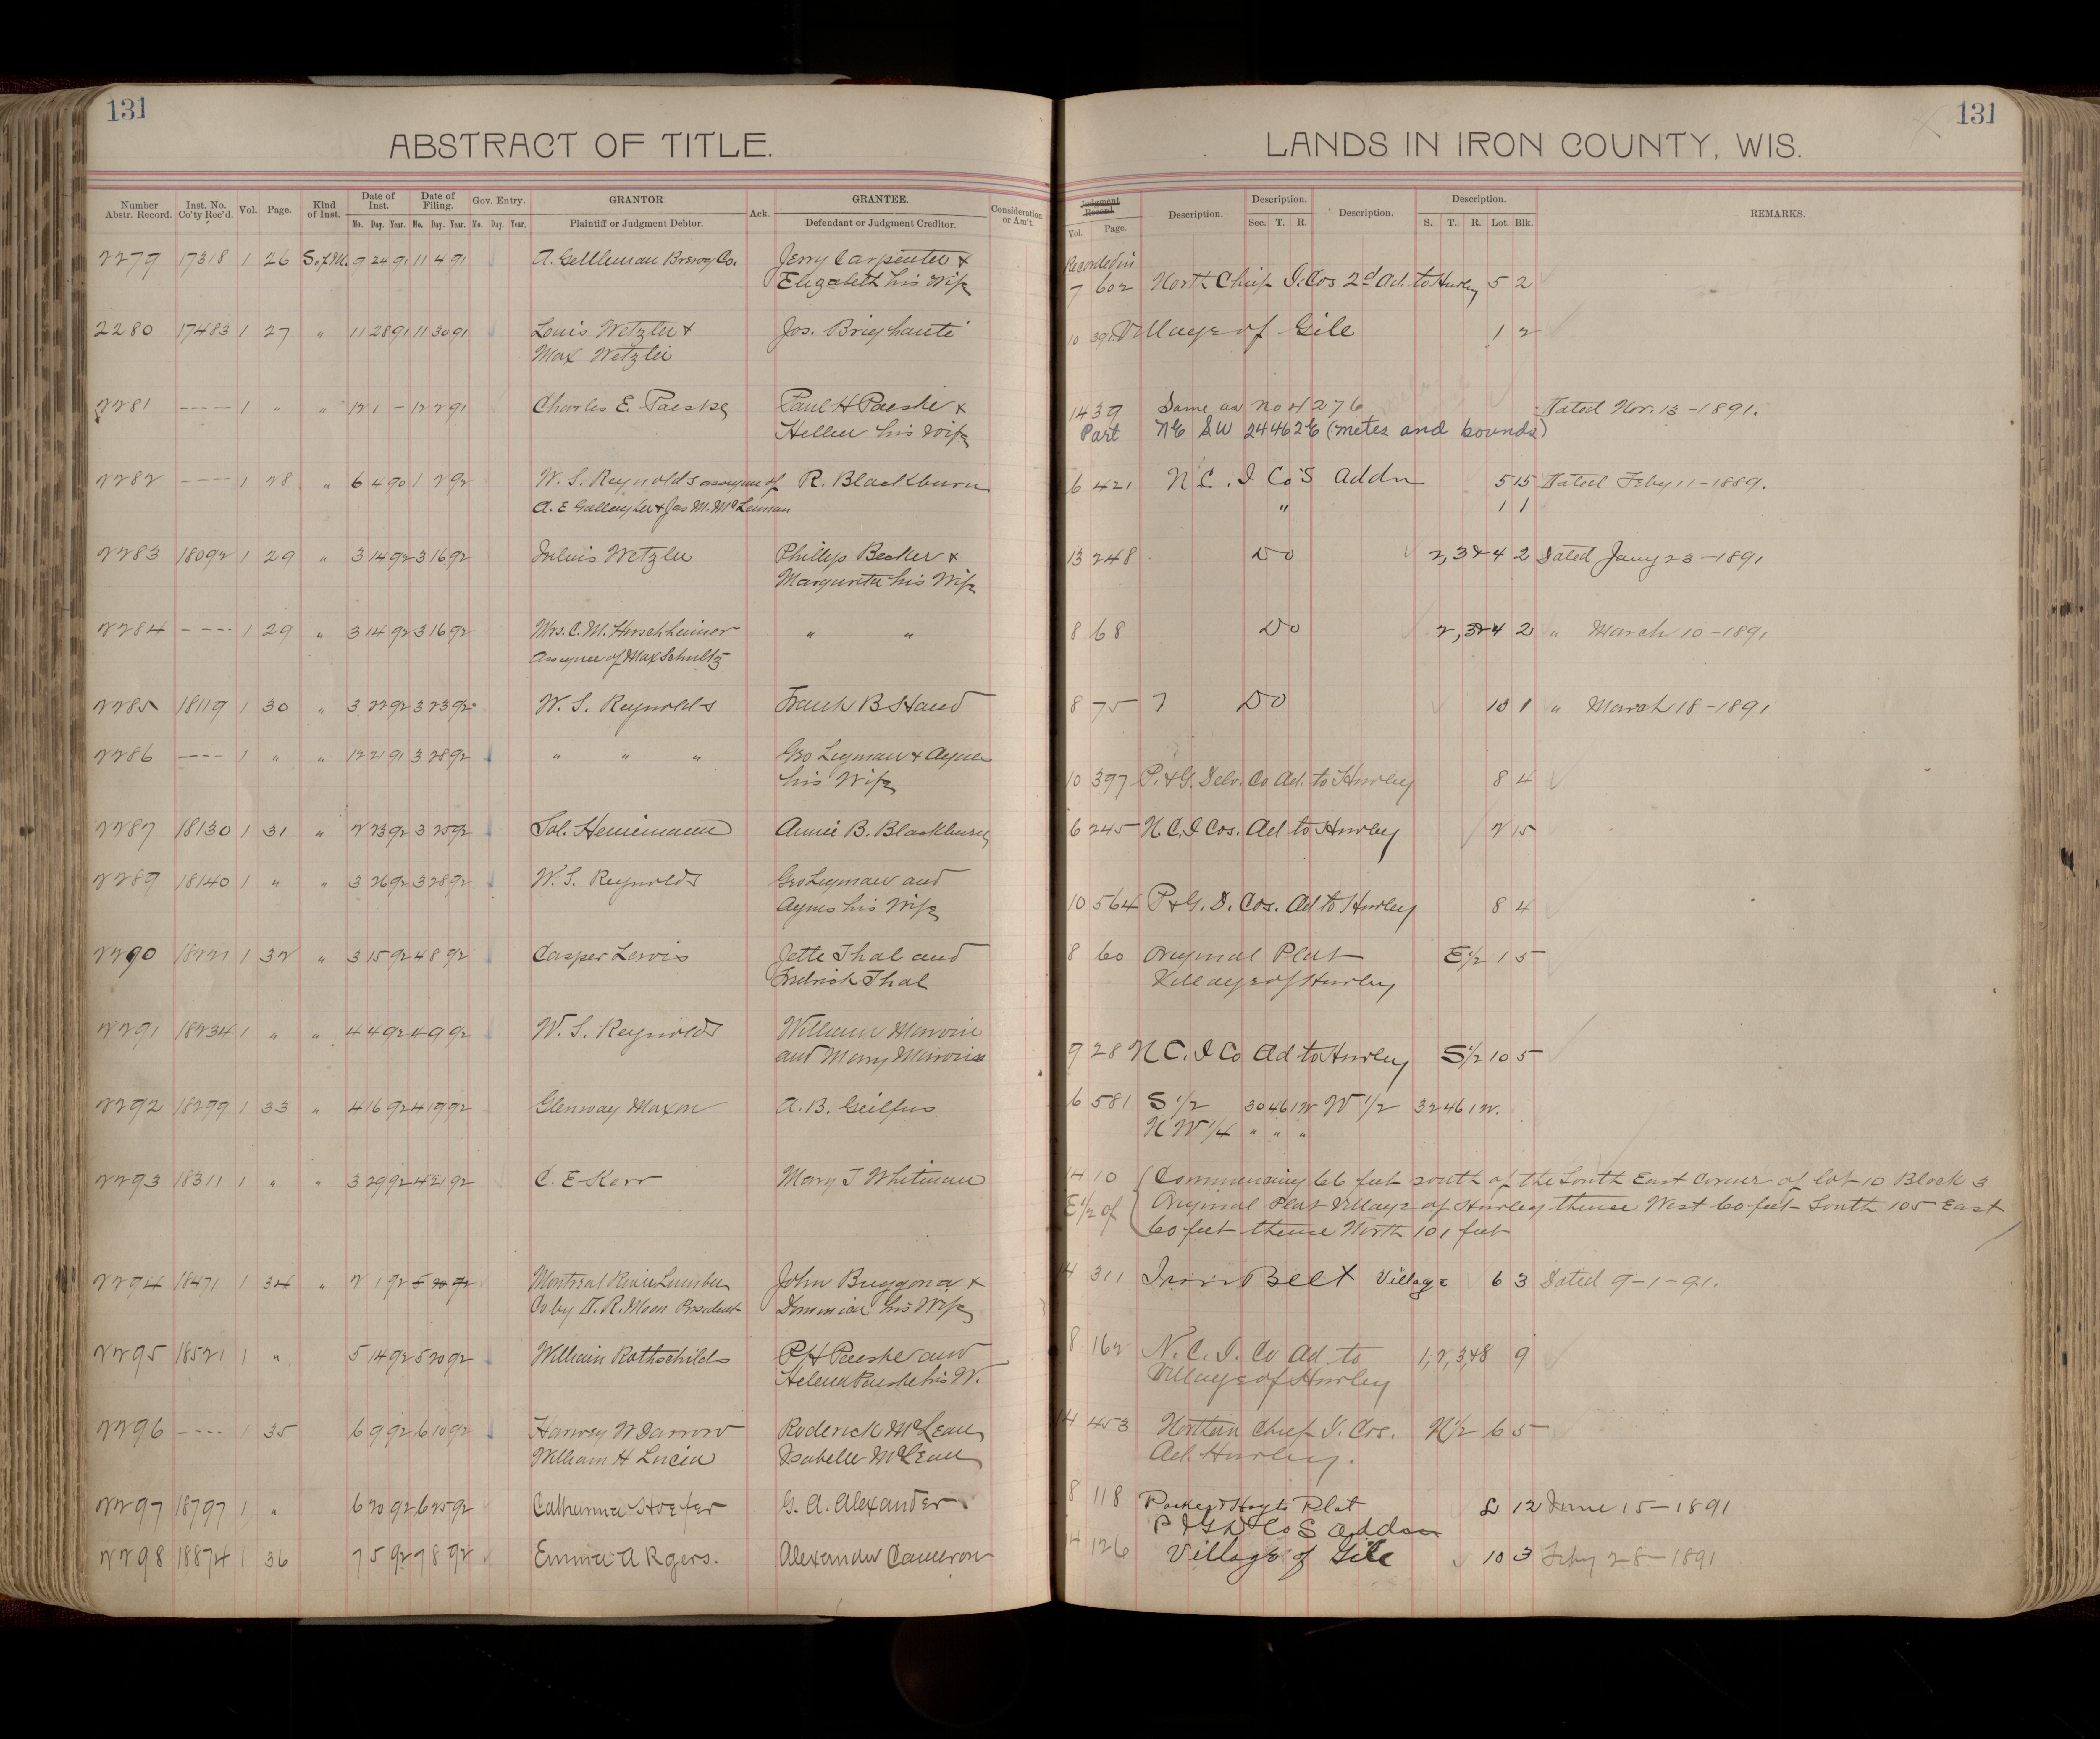 131
131
ABSTRACT OF TITLE.
LANDS IN IRON COUNTY, WIS.
Number Abstr. Record. Inst. No. Co'ty Rec'd. Vol. Page. Kind of Inst. Date of Inst. Date of Filing. Gov. Entry. GRANTOR Ack. GRANTEE. Consideration or Am't. Judgment Record. Description. Description. Description. Description. REMARKS.
Mo. Day. Year. Mo. Day. Year. Mo. Day. Year. Plaintiff or Judgment Debtor. Defendant or Judgment Creditor. Vol. Page. Sec. T. R. S. T. R. Lot. Blk.
2279 17318 1 26 S. of M. 9 24 91 11 4 91 A. Gettleman Brewg Co. Jerry Carpenter & Recorded in
Elizabeth his Wife 7 602 North Chief I. Cos 2d Ad. to Hurley 5 2
2280 17483 1 27 " 11 28 91 11 30 91 Louis Wetzler & Jos. 10 391 Village of Gile 1 2
Max Wetzler
2281 ---- 1 " " 12 1 - 12 2 91 Charles E. Paeske Paul H Paeske & 14 39 Same as No 4276 Dated Nov. 13-1891.
Hellen his Wife Part NE SW 24 46 2E (metes and bounds)
2282 ---- 1 28 " 6 4 90 1 2 92 W. S. Reynolds assignee of R. Blackburn 6 421 N C. I Co's Addn 5 15 Dated Feby 11-1889.
A. E Gallagher & Jas M. McLennan " 1 1
2283 18092 1 29 " 3 14 92 3 16 92 Julius Wetzler Phillip Becker & 13 248 Do 2,3&4 2 Dated Jany 23-1891
Margureta his Wife
2284 ---- 1 29 " 3 14 92 3 16 92 Mrs. C. M. Hirschheimer " " 8 68 Do 2,3&4 2 " March 10-1891
assignee of Max Schultz
2285 18119 1 30 " 3 22 92 3 23 92 W. S. Reynolds Frank B Hand 8 75 Do 10 1 " March 18-1891
2286 ---- 1 " " 12 21 91 3 28 92 " " " Geo Lyman & Agnes
his Wife 10 397 P. & G. Delv. Co Ad. to Hurley 8 4
2287 18130 1 31 " 2 23 92 3 25 92 Sol. Heinemann Annie B. Blackburn 6 245 N. C. I Cos. Ad to Hurley 2 15
2289 18140 1 " " 3 26 92 3 28 92 W. S. Reynolds Geo Lyman and
Agnes his Wife 10 564 P & G. D. Cos. Ad to Hurley 8 4
2290 1 32 " 3 15 92 4 8 92 Casper Lewis Jette Thal and 8 60 Original Plat E1/2 1 5
Fredrick Thal Village of Hurley
2291 18234 1 " " 4 4 92 4 9 92 W. S. Reynolds William
and Mary 9 28 N C. I Co Ad to Hurley S1/2 10 5
2292 18299 1 33 " 4 16 92 4 19 92 Glenway Maxon A. B. Geilfus 6 581 S 1/2 30 46 1W W 1/2 32 46 1W.
N W 1/4 " " "
2293 18311 1 " " 3 29 92 4 21 92 C. E Kerr Mary J Whitman 14 10 (Commencing 66 feet south of the South East Corner of lot 10 Block 3
E 1/2 of Original Plat Village of Hurley thence West 60 feet South 105 East
60 feet thence North 101 feet
2294 18471 1 34 " 2 1 92 5 92 Montreal River Lumber John & 14 311 Iron Belt Village 6 3 Dated 9-1-91.
Co by D. R. Moon President his Wife
2295 18521 1 " 5 14 92 5 20 92 William Rothschilds P H Paeske and 8 162 N. C. I. Co Ad to 1,2,3&8 9
Helena Paeske his W. Village of Hurley
2296 ---- 1 35 6 9 92 6 10 92 Harvey W Darrow Roderick McLean 14 453 Northern Chief I. Cos. N1/2 6 5
William H Lucia Isabelle McLean Ad. Hurley.
2297 18797 1 " 6 20 92 6 25 92 Catharina Hoefer G. A. Alexander 8 118 Plat 12 June 15-1891
P & G D Co S Addn
2298 18874 1 36 7 5 92 7 8 92 Emma A Rgers. Alexander Cameron 14 126 Village of Gile 10 3 Feby 28-1891